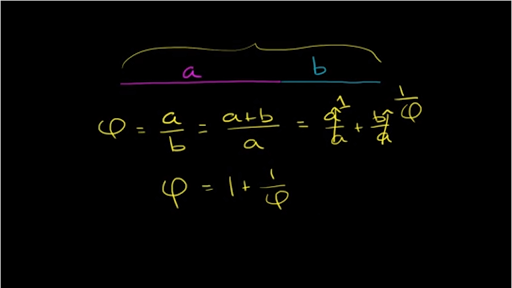 a b
φ = a/b = (a+b)/a = a/a 1 + b/a 1/φ
φ = 1 + 1/φ